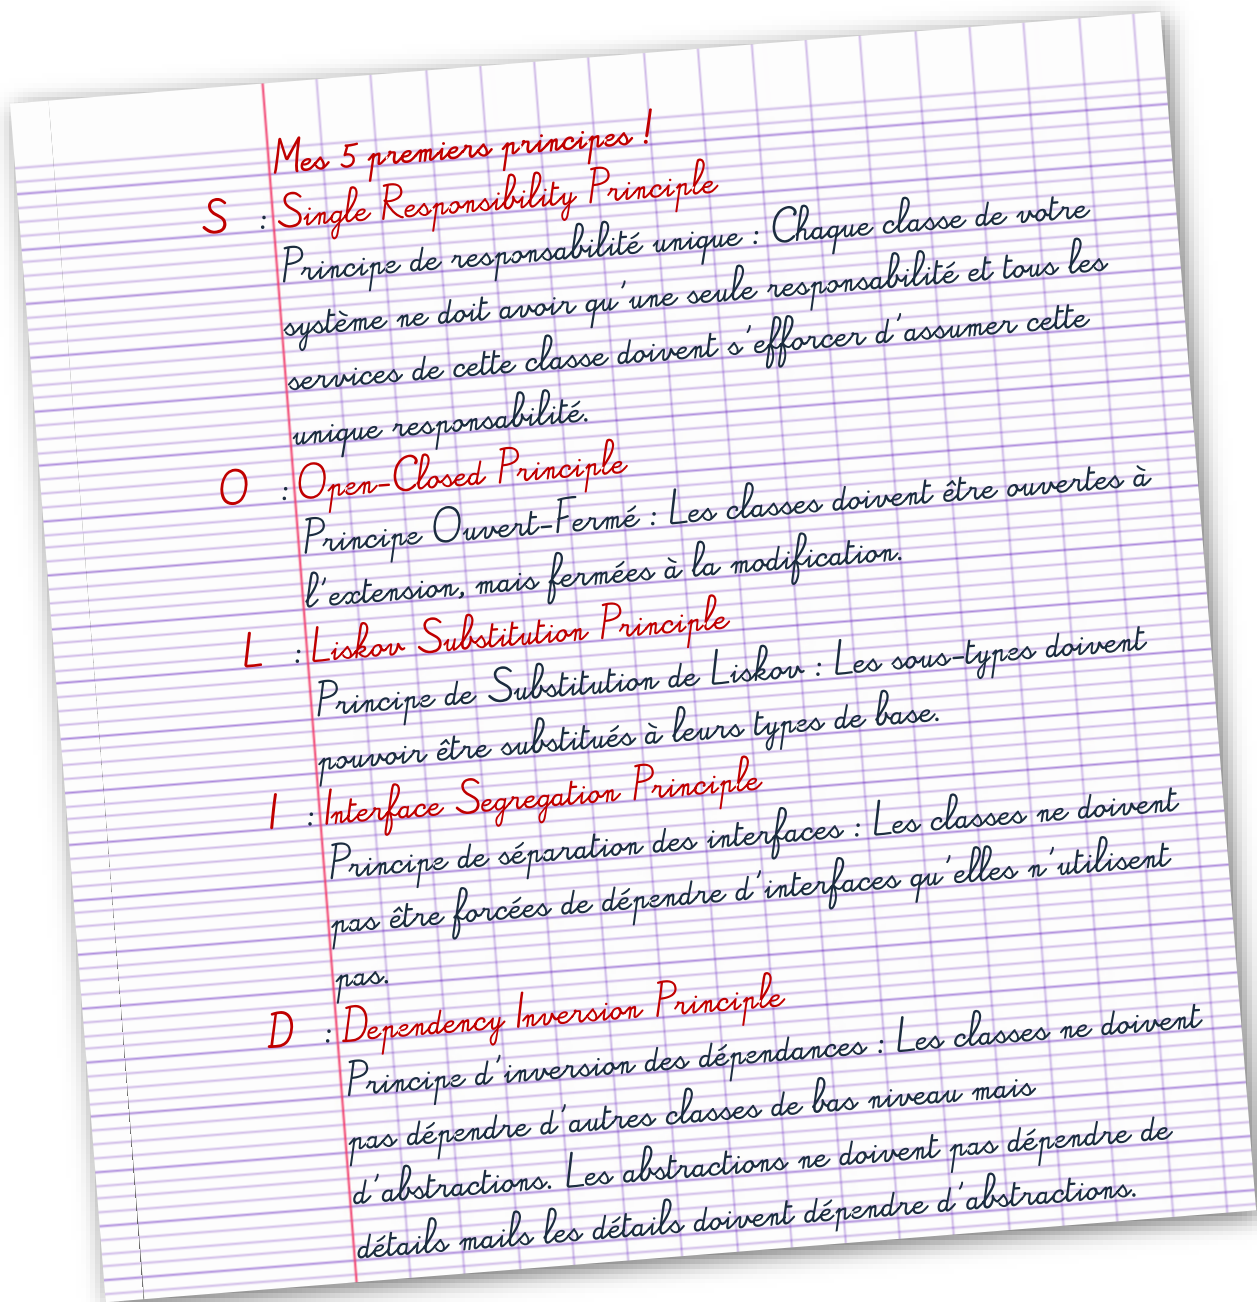 Mes 5 premiers principes !
S : Single Responsibility Principle
Principe de responsabilité unique : Chaque classe de votre
système ne doit avoir qu'une seule responsabilité et tous les
services de cette classe doivent s'efforcer d'assumer cette
unique responsabilité.
O : Open-Closed Principle
Principe Ouvert-Fermé : Les classes doivent être ouvertes à
l'extension, mais fermées à la modification.
L : Liskov Substitution Principle
Principe de Substitution de Liskov : Les sous-types doivent
pouvoir être substitués à leurs types de base.
I : Interface Segregation Principle
Principe de séparation des interfaces : Les classes ne doivent
pas être forcées de dépendre d'interfaces qu'elles n'utilisent
pas.
D : Dependency Inversion Principle
Principe d'inversion des dépendances : Les classes ne doivent
pas dépendre d'autres classes de bas niveau mais
d'abstractions. Les abstractions ne doivent pas dépendre de
détails mails les détails doivent dépendre d'abstractions.